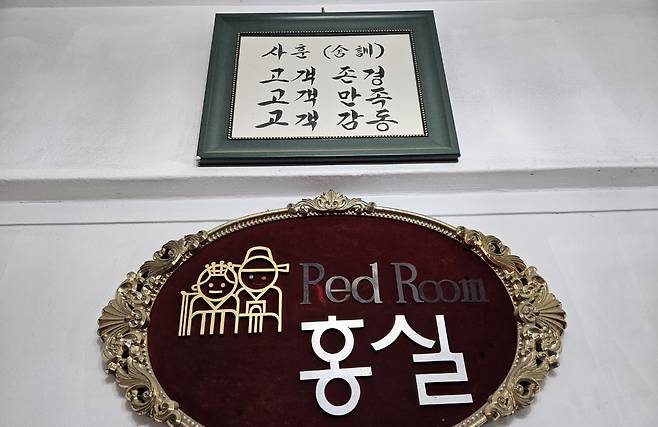 사훈 (舍訓)
고객 존경
고객 만족
고객 감동
Red Room
홍실